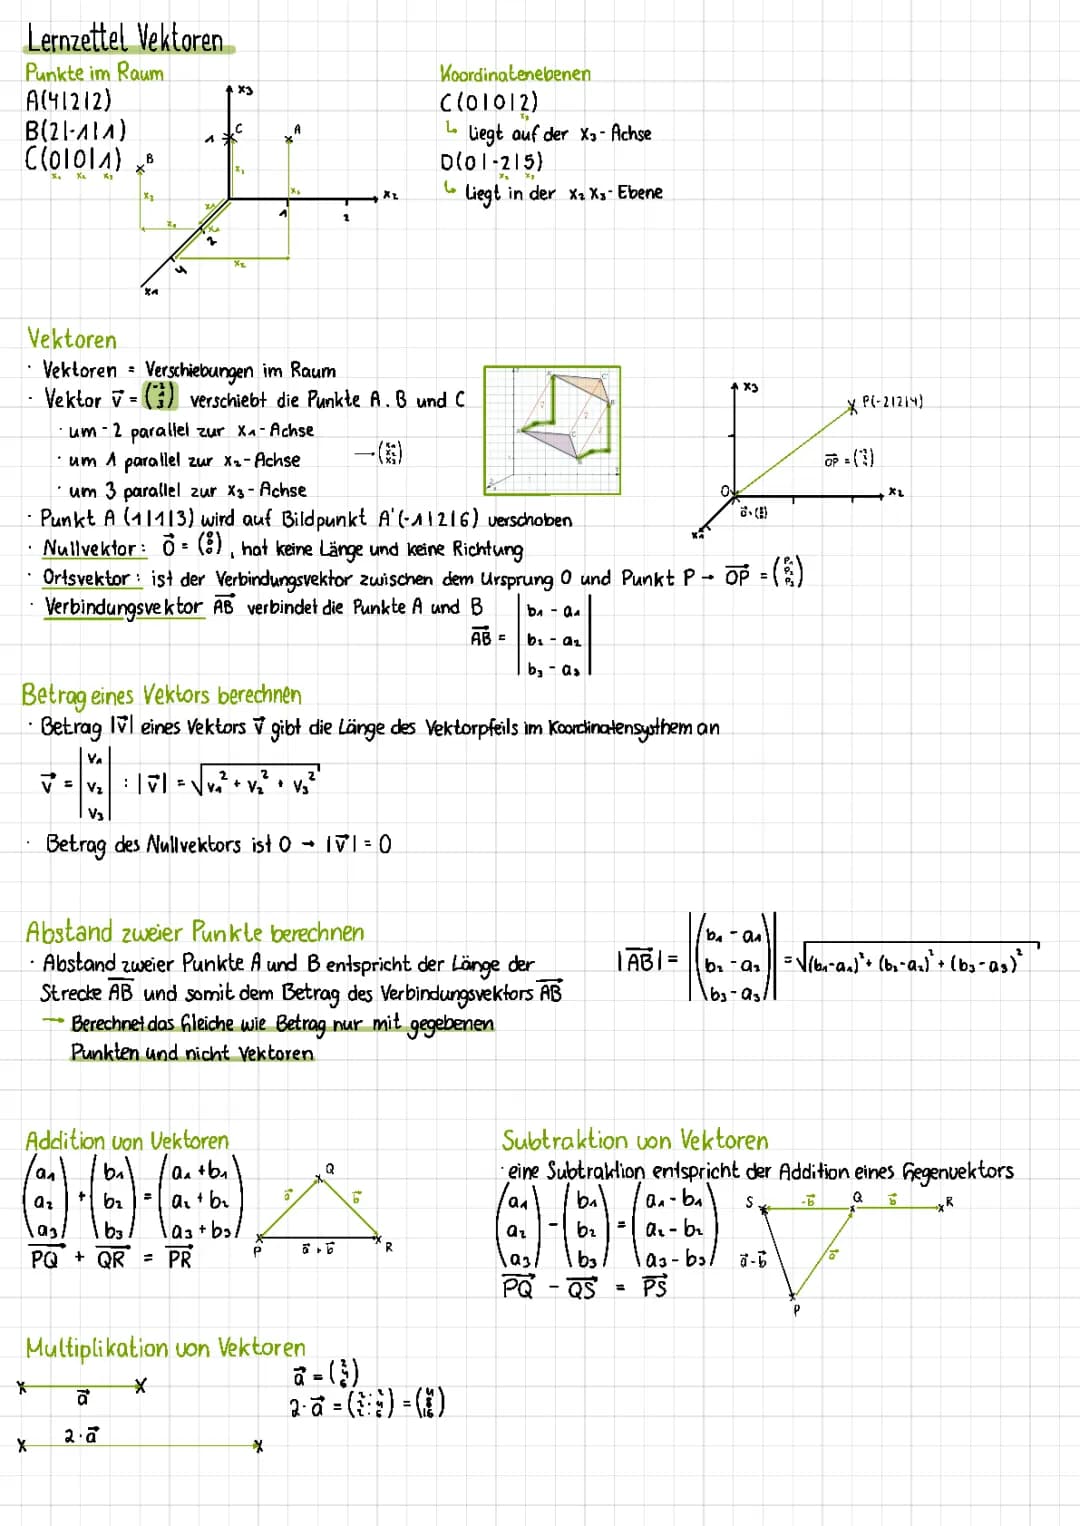 Lernzettel Vektoren
Punkte im Raum
A(4|2|2)
B(2|-1|1)
C(0|0|1)
x₁ x₂ x₃
x₃
C
A
B
1
x₂
1
2
2
4
x₁
Koordinatenebenen
C(0|0|2)
x₃
↳ liegt auf der x₃-Achse
D(0|-2|5)
x₂ x₃
↳ liegt in der x₂ x₃-Ebene
Vektoren
· Vektoren = Verschiebungen im Raum
· Vektor v⃗ = (-2 1 3) verschiebt die Punkte A, B und C
· um -2 parallel zur x₁-Achse
· um 1 parallel zur x₂-Achse → (x₁ x₂ x₃)
· um 3 parallel zur x₃-Achse
· Punkt A (1|1|3) wird auf Bildpunkt A'(-1|2|6) verschoben
· Nullvektor: 0⃗ = (0 0 0), hat keine Länge und keine Richtung
· Ortsvektor: ist der Verbindungsvektor zwischen dem Ursprung O und Punkt P → OP⃗ = (P₁ P₂ P₃)
· Verbindungsvektor AB⃗ verbindet die Punkte A und B
AB⃗ = | b₁ - a₁
b₂ - a₂
b₃ - a₃ |
x₃
P(-2|2|4)
x₂
O
x₁
Betrag eines Vektors berechnen
· Betrag |v⃗| eines Vektors v⃗ gibt die Länge des Vektorpfeils im Koordinatensysthem an
v⃗ = | v₁ v₂ v₃ | : |v⃗| = √v₁² + v₂² + v₃²
· Betrag des Nullvektors ist 0 → |v⃗| = 0
Abstand zweier Punkte berechnen
· Abstand zweier Punkte A und B entspricht der Länge der
Strecke AB und somit dem Betrag des Verbindungsvektors AB⃗
→ Berechnet das Gleiche wie Betrag nur mit gegebenen
Punkten und nicht Vektoren
|AB⃗| = |(b₁ - a₁ b₂ - a₂ b₃ - a₃)| = √(b₁-a₁)² + (b₂-a₂)² + (b₃-a₃)²
Addition von Vektoren
(a₁ a₂ a₃) + (b₁ b₂ b₃) = (a₁ + b₁ a₂ + b₂ a₃ + b₃)
PQ⃗ + QR⃗ = PR⃗
Q
a⃗
b⃗
P
a⃗ + b⃗
R
Subtraktion von Vektoren
· eine Subtraktion entspricht der Addition eines Gegenvektors
(a₁ a₂ a₃) - (b₁ b₂ b₃) = (a₁ - b₁ a₂ - b₂ a₃ - b₃)
PQ⃗ - QS⃗ = PS⃗
S
-b⃗
Q
b⃗
R
a⃗-b⃗
a⃗
P
Multiplikation von Vektoren
a⃗
2·a⃗
a⃗ =
2·a⃗ =